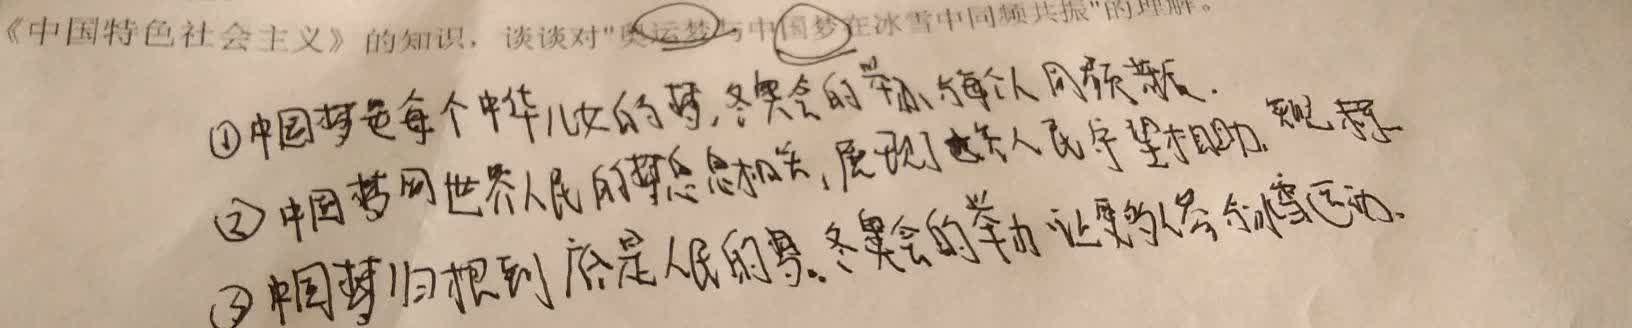 《中国特色社会主义》的知识，谈谈对"奥运梦与中国梦在冰雪中同频共振"的理解。
①中国梦是每个中华儿女的梦,冬奥会的举办与每个人同频共振.
②中国梦同世界人民的梦息息相关,展现了世界人民守望相助.
③中国梦归根到底是人民的梦。冬奥会的举办让更多人参与冰雪运动.